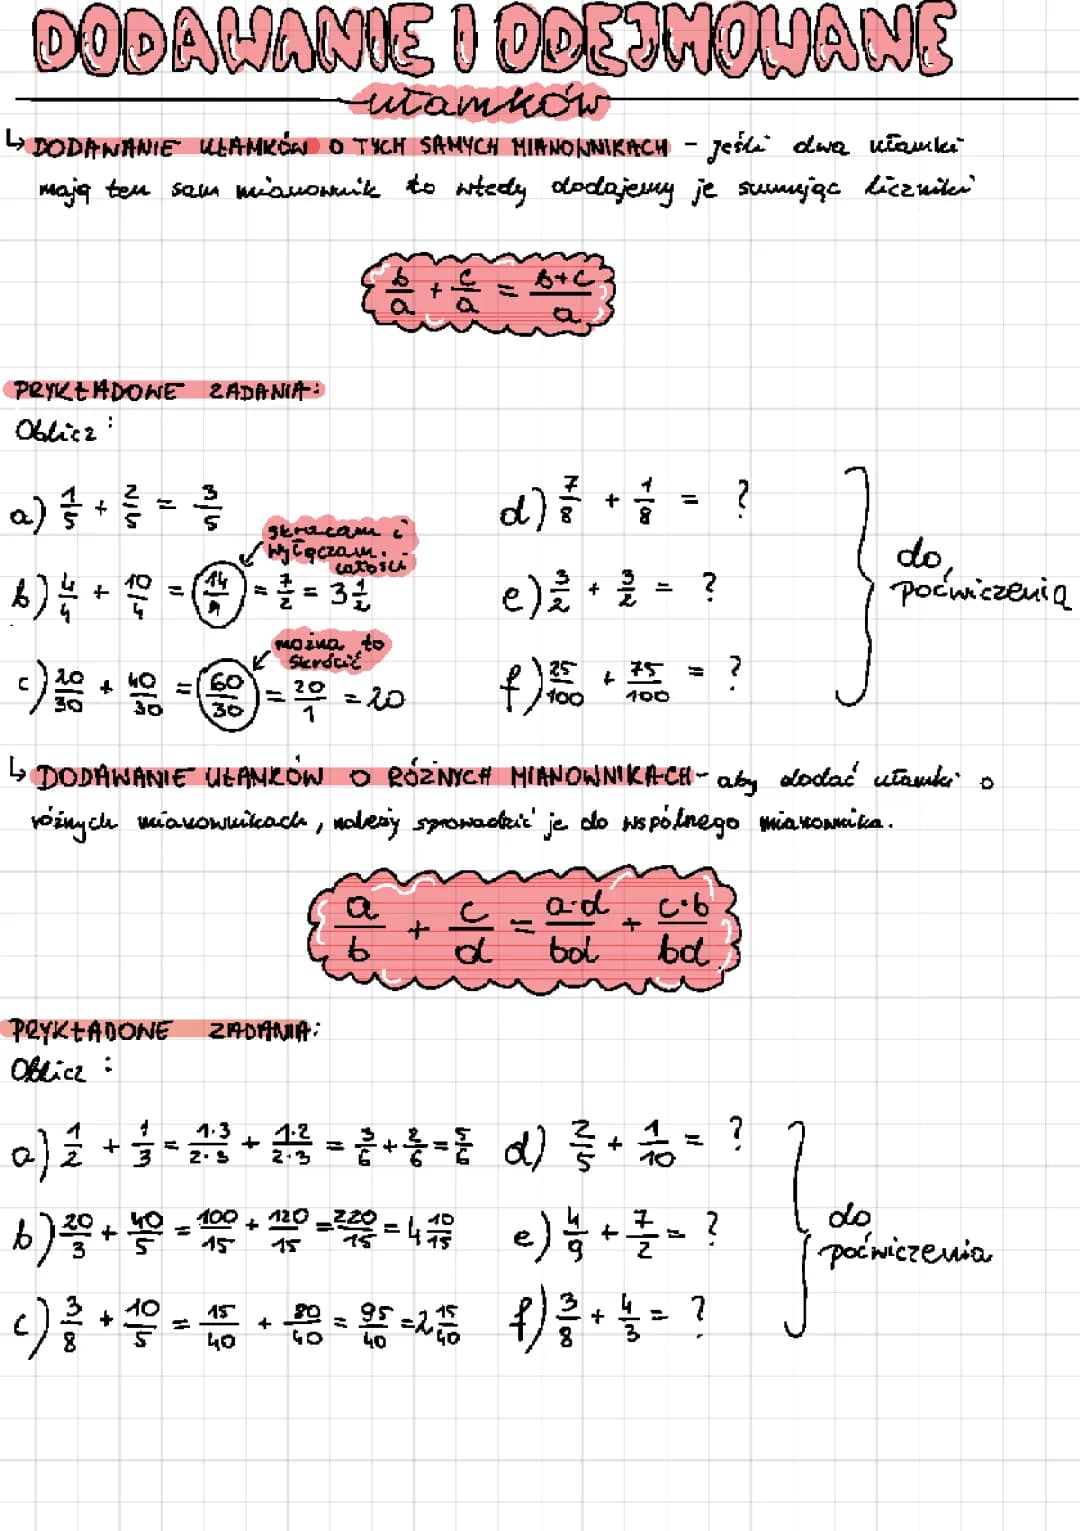 DODAWANIE I ODEJMOWANE
ułamków
↳ DODAWANIE UŁAMKÓW O TYCH SAMYCH MIANOWNIKACH - jeśli dwa ułamki
mają ten sam mianownik to wtedy dodajemy je sumując liczniki
b/a + c/a = b+c/a
PRYKŁADOWE ZADANIA:
Oblicz:
a) 1/5 + 2/5 = 3/5
skracam i
wyłączam
całości
b) 4/4 + 10/4 = 14/4 = 7/2 = 3 1/2
można to
skrócić
c) 20/30 + 40/30 = 60/30 = 20/1 = 20
d) 7/8 + 1/8 = ?
e) 3/2 + 3/2 = ?
f) 25/100 + 75/100 = ?
do
poćwiczenia
↳ DODAWANIE UŁAMKÓW O RÓŻNYCH MIANOWNIKACH - aby dodać ułamki o
różnych mianownikach, należy sprowadzić je do wspólnego mianownika.
a/b + c/d = a·d/bd + c·b/bd
PRYKŁADOWE ZADANIA:
Oblicz:
a) 1/2 + 1/3 = 1·3/2·3 + 1·2/2·3 = 3/6 + 2/6 = 5/6
b) 20/3 + 40/5 = 100/15 + 120/15 = 220/15 = 4 10/15
c) 3/8 + 10/5 = 15/40 + 80/40 = 95/40 = 2 15/40
d) 2/5 + 1/10 = ?
e) 4/9 + 7/2 = ?
f) 3/8 + 4/3 = ?
do
poćwiczenia